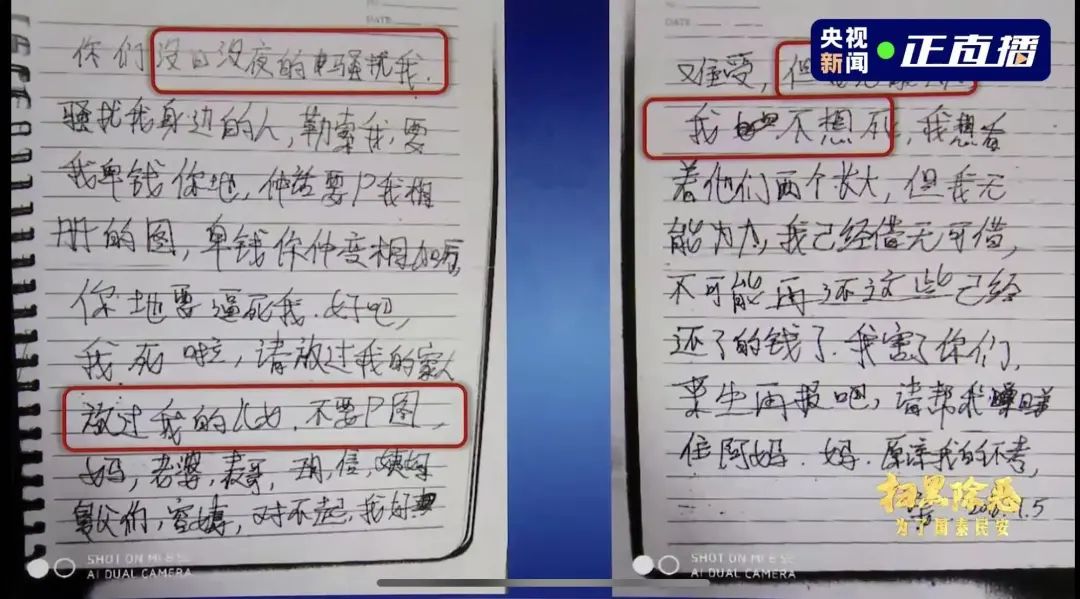 你们没日没夜的骚扰我.
骚扰我身边的人,勒索我,要
我卑钱你地,仲话要P我相
册的图,卑钱你仲变相
你地要逼死我.好吧,
我死啦,请放过我的家人
放过我的儿女.不要P图,
妈,老婆,表哥,
父们,对不起,我好
SHOT ON MI 8 SE
AI DUAL CAMERA
央视新闻
正直播
又难受,但
我 不想死,我想看
着他们两个长大,但我无
能为力,我已经借无可借,
不可能再还这些已经
还了的钱了.我害了你们,
来生再报吧,请帮我
住阿妈.妈.原谅我的不孝,
1.5
扫黑除恶
为了国泰民安
SHOT ON MI 8 SE
AI DUAL CAMERA